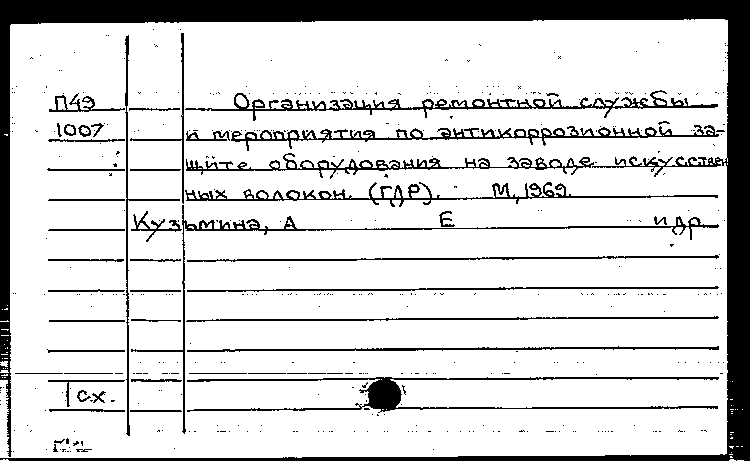 П49 Организация ремонтной службы
1007 и мероприятия по антикоррозионной за-
щите оборудования на заводе искусствен
ных волокон. (ГДР). М, 1969.
Кузьмина, А Е и др
1 сх.